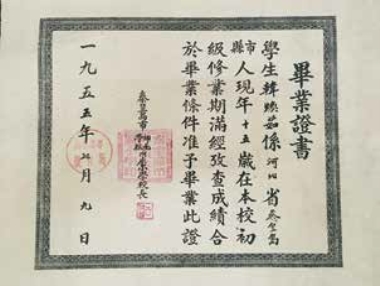 畢業證書
學生韓 茹係河北省秦皇島
市縣人現年十五歲在本校初
級修業期滿經攷查成績合
於畢業條件准予畢業此證
秦皇島市
學校 校長
一九五五年七月九日